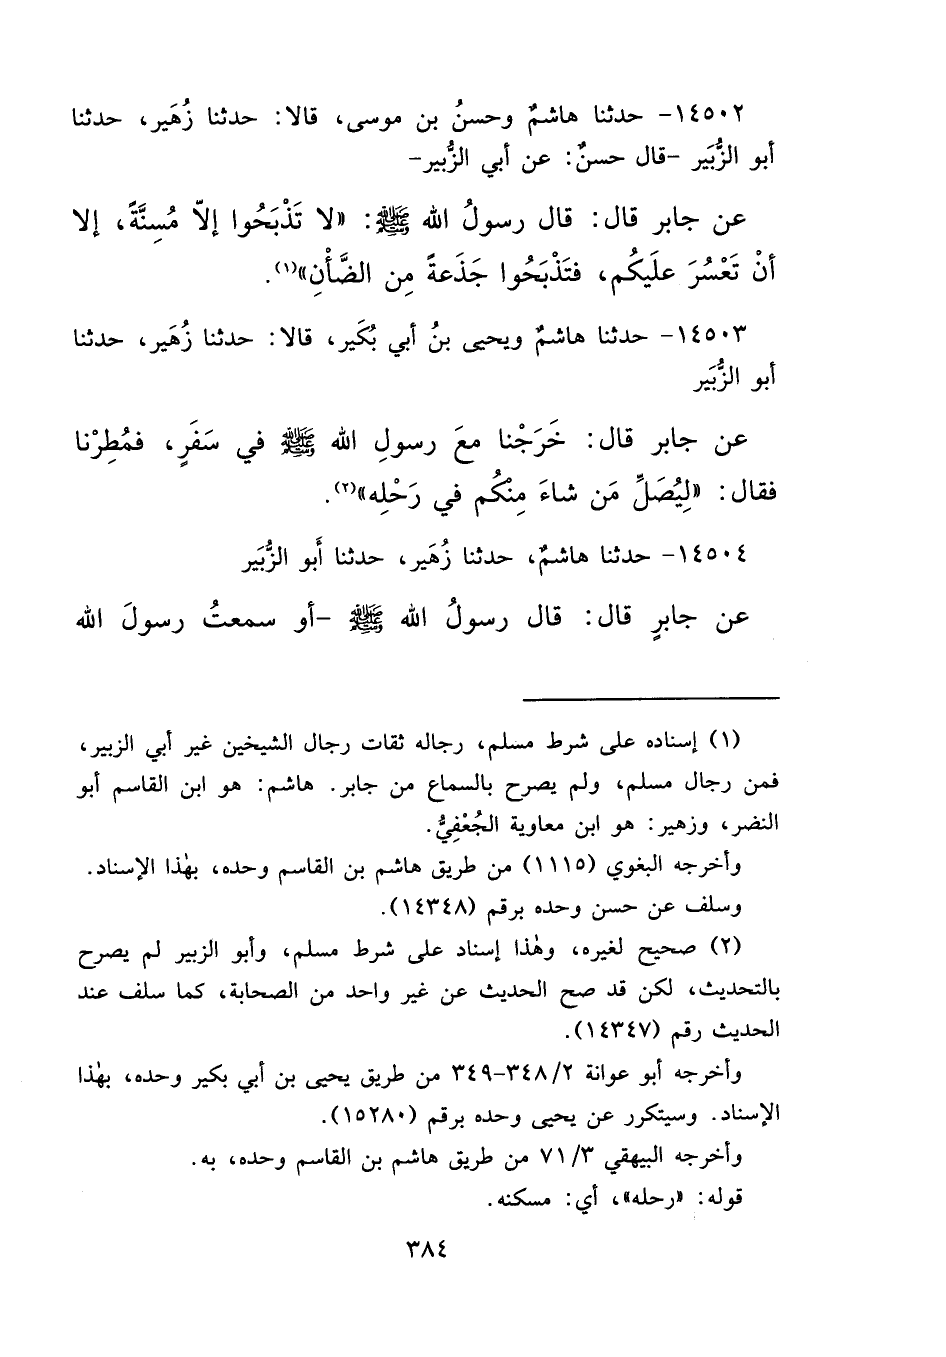 ١٤٥٠٢- حدثنا هاشمٌ وحسنُ بن موسى، قالا: حدثنا زُهَير، حدثنا
أبو الزُّبَير -قال حسنٌ: عن أبي الزُّبير-
عن جابر قال: قال رسولُ الله ﷺ: «لا تَذْبَحُوا إلاّ مُسِنَّةً، إلا
أنْ تَعْسُرَ علَيكُم، فتَذْبَحُوا جَذَعةً مِن الضَّأْنِ»(١).
١٤٥٠٣- حدثنا هاشمٌ ويحيى بنُ أبي بُكَير، قالا: حدثنا زُهَير، حدثنا
أبو الزُّبَير
عن جابر قال: خَرَجْنا معَ رسولِ الله ﷺ في سَفَرٍ، فمُطِرْنا
فقال: «لِيُصَلِّ مَن شاءَ مِنْكُم في رَحْلِه»(٢).
١٤٥٠٤- حدثنا هاشمٌ، حدثنا زُهَير، حدثنا أَبو الزُّبَير
عن جابرٍ قال: قال رسولُ الله ﷺ -أو سمعتُ رسولَ الله
(١) إسناده على شرط مسلم، رجاله ثقات رجال الشيخين غير أبي الزبير،
فمن رجال مسلم، ولم يصرح بالسماع من جابر. هاشم: هو ابن القاسم أبو
النضر، وزهير: هو ابن معاوية الجُعْفِيُّ.
وأخرجه البغوي (١١١٥) من طريق هاشم بن القاسم وحده، بهٰذا الإسناد.
وسلف عن حسن وحده برقم (١٤٣٤٨).
(٢) صحيح لغيره، وهٰذا إسناد على شرط مسلم، وأبو الزبير لم يصرح
بالتحديث، لكن قد صح الحديث عن غير واحد من الصحابة، كما سلف عند
الحديث رقم (١٤٣٤٧).
وأخرجه أبو عوانة ٣٤٨/٢-٣٤٩ من طريق يحيى بن أبي بكير وحده، بهٰذا
الإسناد. وسيتكرر عن يحيى وحده برقم (١٥٢٨٠).
وأخرجه البيهقي ٧١/٣ من طريق هاشم بن القاسم وحده، به.
قوله: «رحله»، أي: مسكنه.
٣٨٤